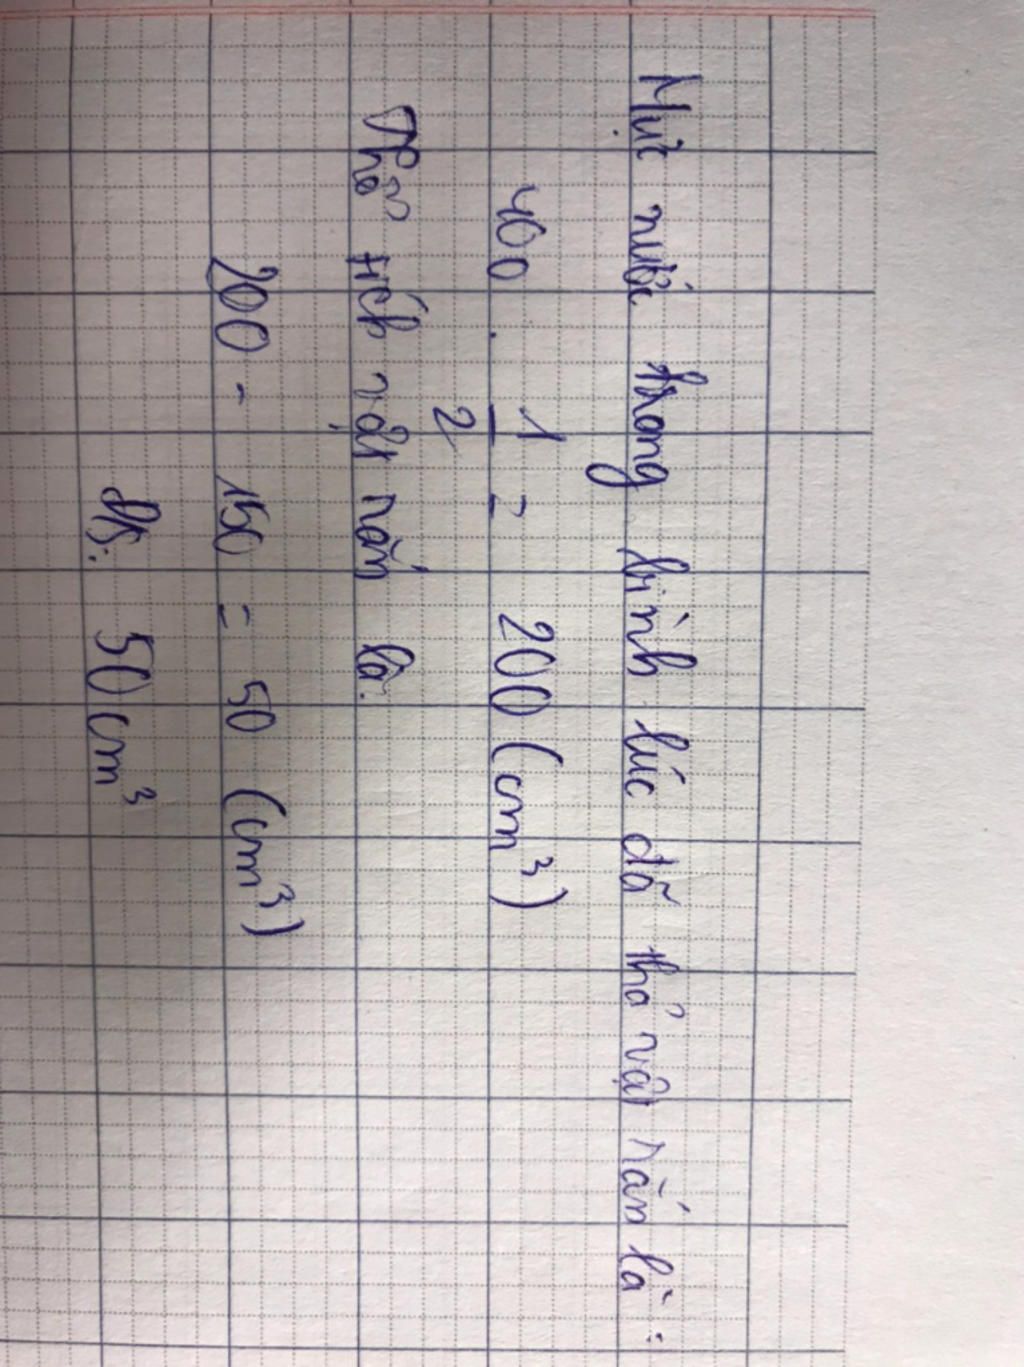 Mực nước trong bình lúc đã thả vật rắn là :
400 . 1/2 = 200 (cm³)
Thể tích vật rắn là:
200 - 150 = 50 (cm³)
Đs: 50 cm³